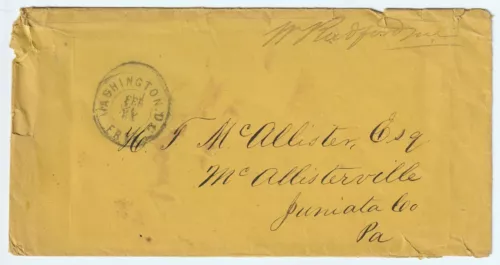 WASHINGTON D.C.
FEB
FREE
H. T McAllister, Esq
McAllisterville
Juniata Co
Pa